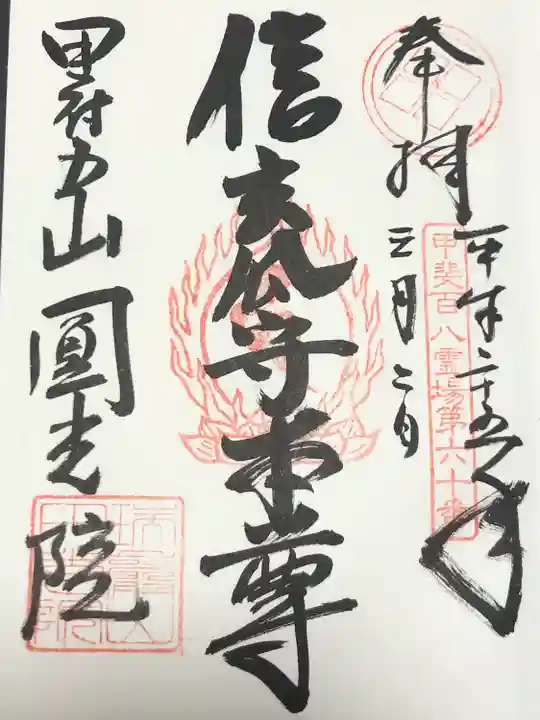 奉拝
平成二十五年
三月二日
甲斐百八霊場第六十番
信玄公守本尊
甲府五山 圓光院